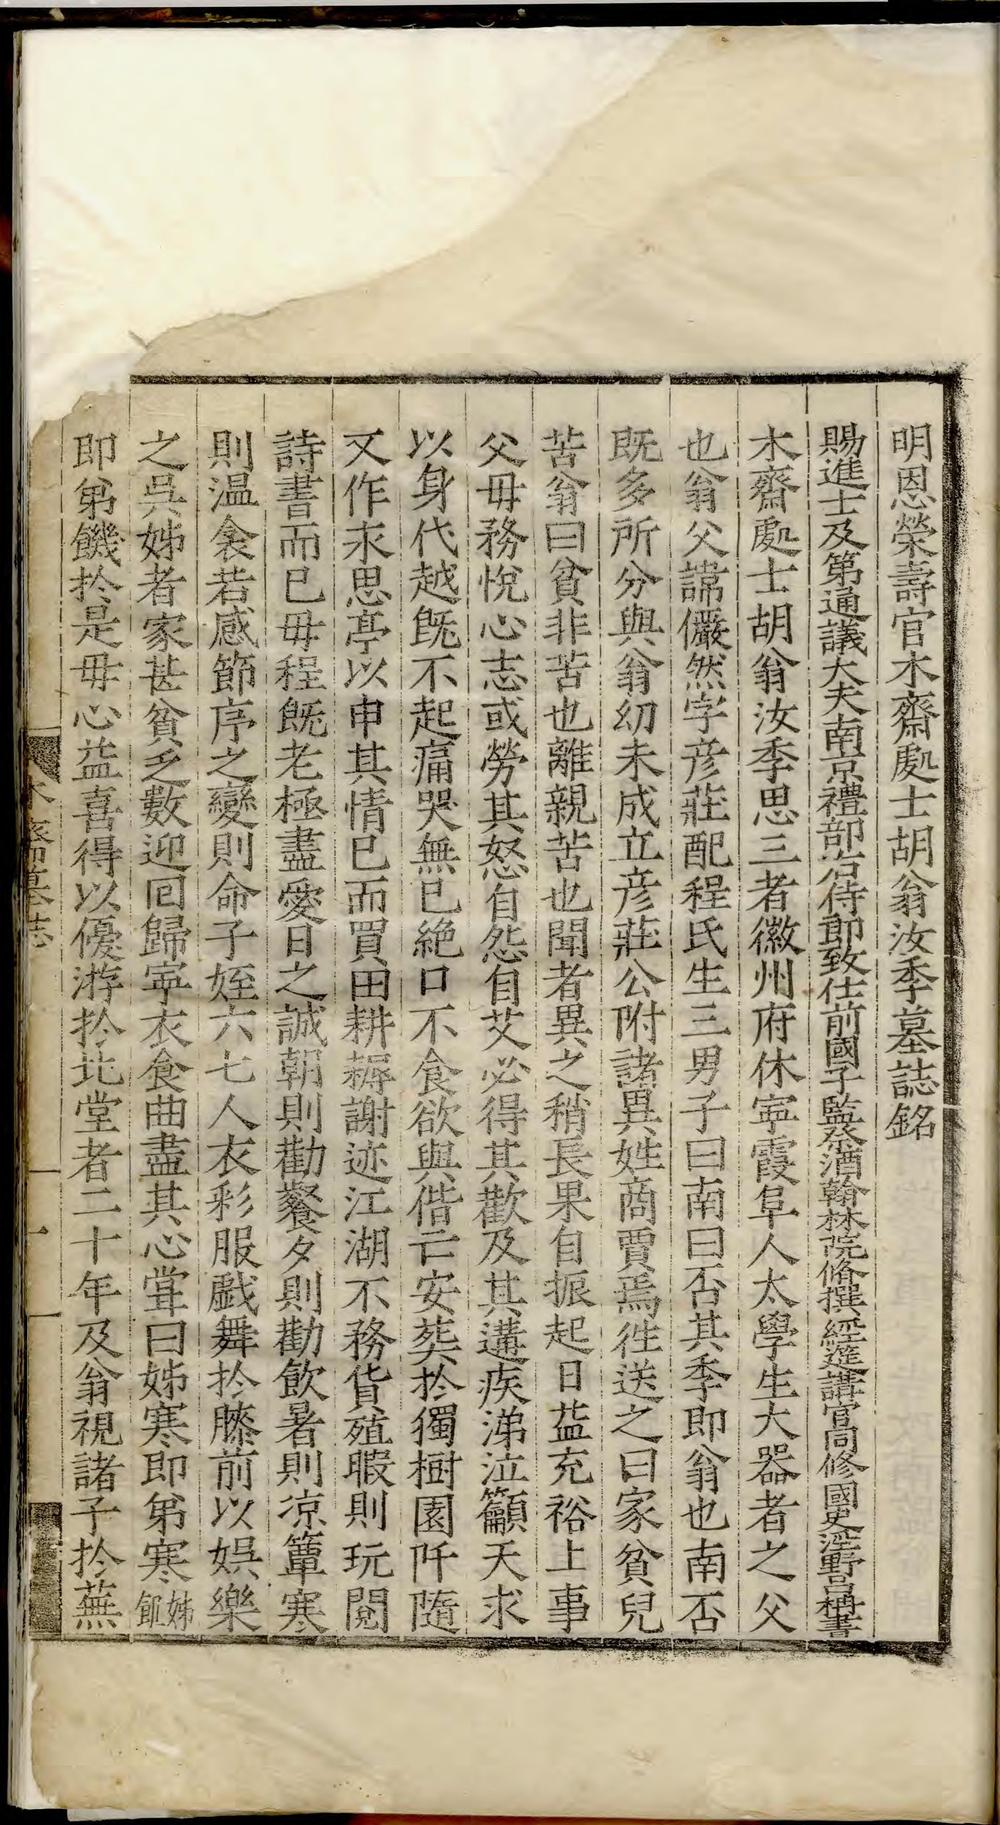 明恩榮壽官木齋處士胡翁汝季墓誌銘
賜進士及第通議大夫南京禮部右侍郎致仕前國子監祭酒翰林院脩撰經筵講官同修國史涇野呂柟書
木齋處士胡翁汝季思三者徽州府休寧霞阜人太學生大器者之父
也翁父諱儼然字彦莊配程氏生三男子曰南曰否其季即翁也南否
既多所分與翁幼未成立彦莊公附諸異姓商賈焉徃送之曰家貧兒
苦翁曰貧非苦也離親苦也聞者異之稍長果自振起日益充裕上事
父毋務悅心志或勞其怒自怨自艾必得其歡及其遘疾涕泣籲天求
以身代越旣不起痛哭無已絶口不食欲與偕亡安葬扵獨樹園阡隨
又作永思亭以申其情已而買田耕耨謝迹江湖不務貨殖暇則玩閱
詩書而已毋程旣老極盡愛日之誠朝則勸餐夕則勸飲暑則凉簟寒
則温衾若感節序之變則命子姪六七人衣彩服戲舞扵膝前以娯樂
之吳姊者家甚貧乏數迎囘歸寧衣食曲盡其心甞曰姊寒即弟寒姊飢
即弟饑扵是毋心益喜得以優游扵北堂者二十年及翁視諸子扵蕪
木齋墓誌
一